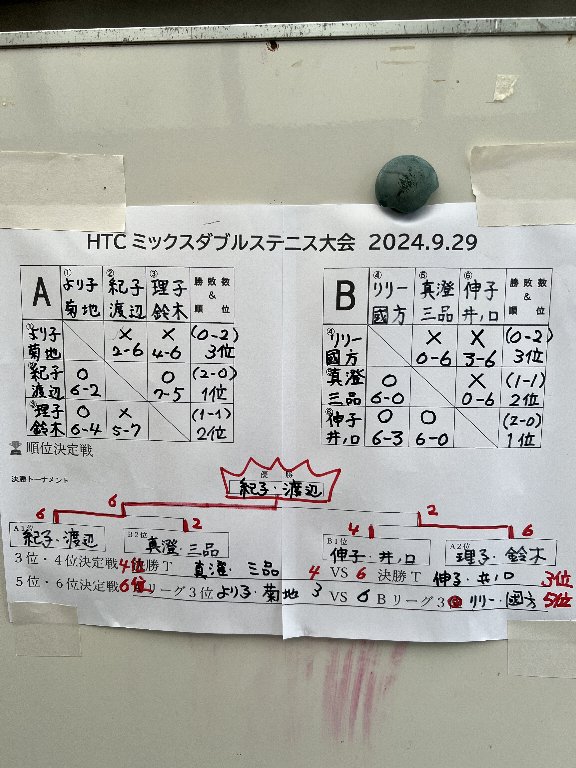 HTC ミックスダブルステニス大会 2024.9.29
A ①より子 菊地 ②紀子 渡辺 ③理子 鈴木 勝敗数 & 順位
①より子 菊地 × 2-6 × 4-6 (0-2) 3位
②紀子 渡辺 ○ 6-2 ○ 7-5 (2-0) 1位
③理子 鈴木 ○ 6-4 × 5-7 (1-1) 2位
B ④リリー 國方 ⑤真澄 三品 ⑥伸子 井ノ口 勝敗数 & 順位
④リリー 國方 × 0-6 × 3-6 (0-2) 3位
⑤真澄 三品 ○ 6-0 × 0-6 (1-1) 2位
⑥伸子 井ノ口 ○ 6-3 ○ 6-0 (2-0) 1位
順位決定戦
決勝トーナメント
優勝
紀子・渡辺
6 2
6 2 4 6
A1位 紀子・渡辺 B2位 真澄・三品 B1位 伸子・井ノ口 A2位 理子・鈴木
3位・4位決定戦 4位 勝T 真澄・三品 4 VS 6 決勝T 伸子・井ノ口 3位
5位・6位決定戦 6位 リーグ3位 より子・菊地 3 VS 6 Bリーグ3 リリー・國方 5位